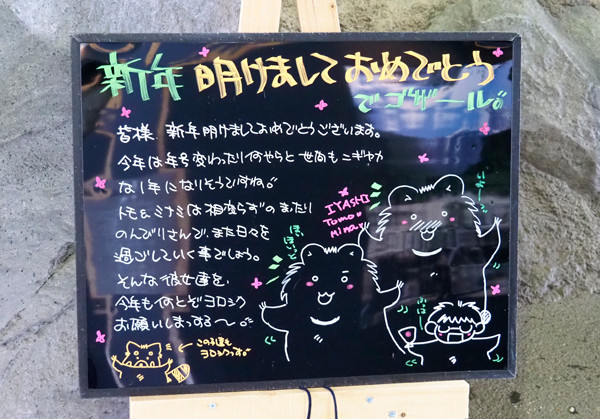 新年 明けましておめでとう
でゴザール。
皆様、新年明けましておめでとうございます。
今年は年号変わったり何やらと世間もニギヤカ
な1年になりそうですね。
トモ&ミナミは相変らずのまったり
のんびりさんで、また日々を
過ごしていく事でしょう。
そんな彼女達を、
今年も何とぞヨロシク
お願いしまっする〜。
IYASHI
Tomo &
Minami
この子達も
ヨロシクっす。